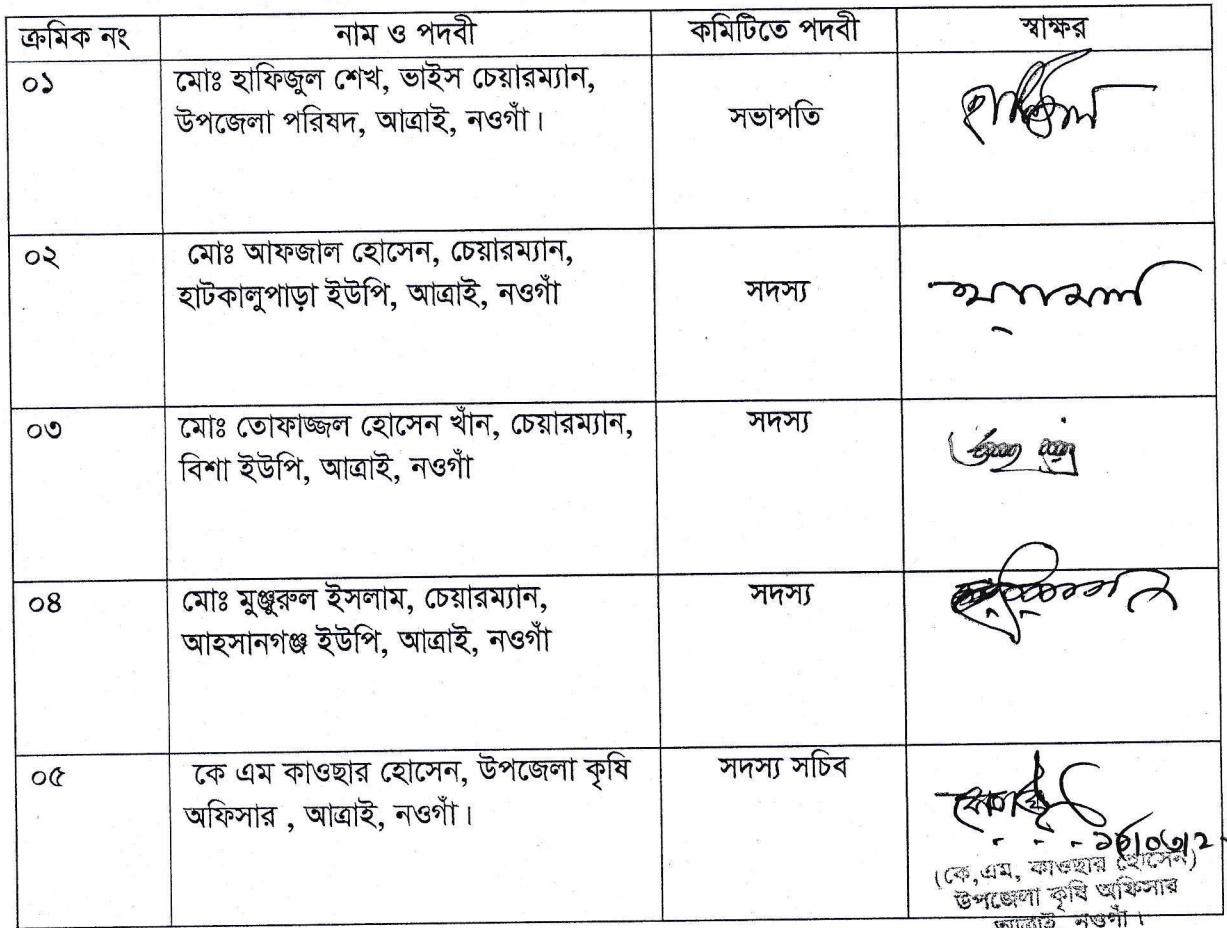 ক্রমিক নং নাম ও পদবী কমিটিতে পদবী স্বাক্ষর
০১ মোঃ হাফিজুল শেখ, ভাইস চেয়ারম্যান,
উপজেলা পরিষদ, আত্রাই, নওগাঁ। সভাপতি
০২ মোঃ আফজাল হোসেন, চেয়ারম্যান,
হাটকালুপাড়া ইউপি, আত্রাই, নওগাঁ সদস্য
০৩ মোঃ তোফাজ্জল হোসেন খাঁন, চেয়ারম্যান, সদস্য
বিশা ইউপি, আত্রাই, নওগাঁ
০৪ মোঃ মুঞ্জুরুল ইসলাম, চেয়ারম্যান, সদস্য
আহসানগঞ্জ ইউপি, আত্রাই, নওগাঁ
০৫ কে এম কাওছার হোসেন, উপজেলা কৃষি সদস্য সচিব
অফিসার , আত্রাই, নওগাঁ।
(কে,এম, কাওছার হোসেন)
উপজেলা কৃষি অফিসার
আত্রাই, নওগাঁ।